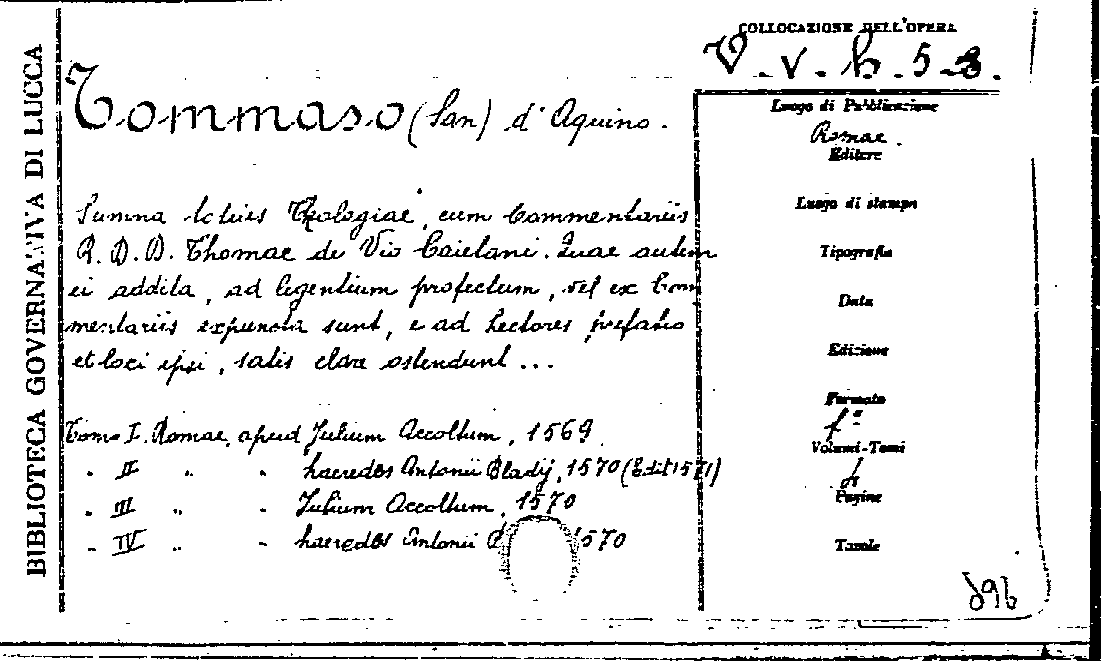 BIBLIOTECA GOVERNATIVA DI LUCCA
COLLOCAZIONE DELL'OPERA
V.v.h.5-3.
Tommaso (San) d'Aquino.
Summa totius Theologiae, cum Commentariis
R. D. D. Thomae de Vio Caietani. Quae autem
ei addita, ad legentium profectum, vel ex Com
mentariis expuncta sunt, e ad Lectores prefatio
et loci ipsi, satis clare ostendunt ...
Tomo I. Romae, apud Julium Accoltum, 1569
" II " " haeredes Antonii Bladij, 1570 (Edit 1571)
" III " " Julium Accoltum, 1570
" IV " " haeredes Antonii 1570
Luogo di Pubblicazione
Romae.
Editore
Luogo di stampa
Tipografia
Data
Edizione
Formato
f°
Volumi-Tomi
Pagine
Tavole